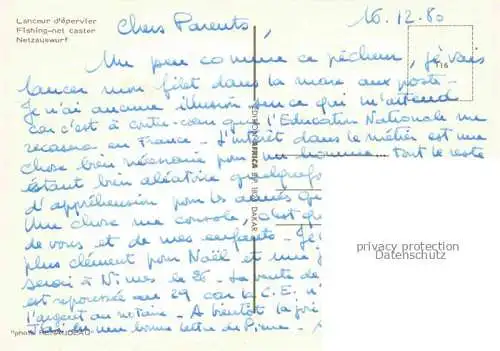 Lanceur d'épervier
Fishing-net caster
Netzauswurf
16.12.80
Chers Parents,
Un peu comme ce pêcheur, je vais
lancer mon filet dans la mare aux postes.
Je n'ai aucune illusion sur ce qui m'attend
car c'est à contre-coeur que l'Education Nationale me
recasera en France. L'intérêt dans le métier est une
chose bien nécessaire pour un homme. Tout le reste
étant bien aléatoire quelquefois
d'appréhension pour les années
Une chose me console, c'est que
de vous et de mes enfants. Je
plus clément pour Noël et une
serai à le 26. La vente de
est repoussée au 29 car la C.E. n'
l'argent au notaire. A bientôt la joie
bonne lettre de
EDITIONS AFRICA BP 1826 DAKAR
116
privacy protection
Datenschutz
"photo RENAUDEAU"